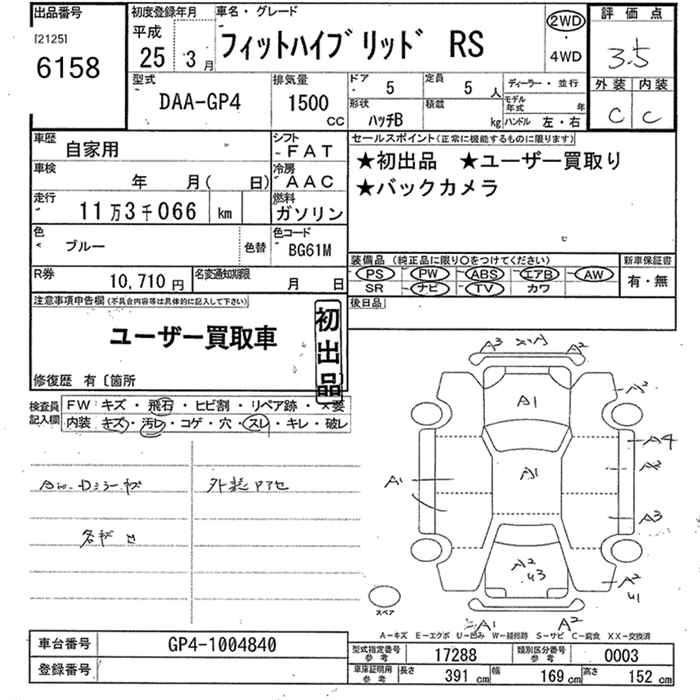 出品番号 初度登録年月 車名・グレード 評価点
[2125] 平成 フィットハイブリッド RS 2WD
6158 25年 3月 ・ 3.5
4WD
型式 排気量 ドア 5 定員 5人 ディーラー・並行 外装 内装
DAA-GP4 1500cc 形状 ハッチB 積載 kg モデル年式 年 C C
ハンドル 左・右
車歴 自家用 シフト FAT セールスポイント(正常に機能するものに限ります)
車検 年 月( 日) 冷房 AAC ★初出品 ★ユーザー買取り
走行 11万3千066 km 燃料 ガソリン ★バックカメラ
色 ブルー 色替 色コード BG61M
装備品 (純正品に限り○をつけてください) 新車保証書
R券 10,710円 名変通知期限 月 日 PS PW ABS エアB AW 有・無
SR ナビ TV カワ
注意事項申告欄(不具合内容等は具体的に記入して下さい) 後日品
ユーザー買取車 初出品
修復歴 有〔箇所
検査員記入欄 FW キズ・飛石・ヒビ割・リペア跡・×要
内装 キズ・汚レ・コゲ・穴・スレ・キレ・破レ
A3 A2
A1 A2
A4
A1 A1 A2
A3
A2 U3 A2
U1
スペア A1 A2
A-キズ E-エクボ U-凹み W-補修跡 S-サビ C-腐食 XX-交換済
車台番号 GP4-1004840
型式指定番号参考 17288 類別区分番号参考 0003
登録番号 車庫証明用参考 長さ 391cm 幅 169cm 高さ 152cm